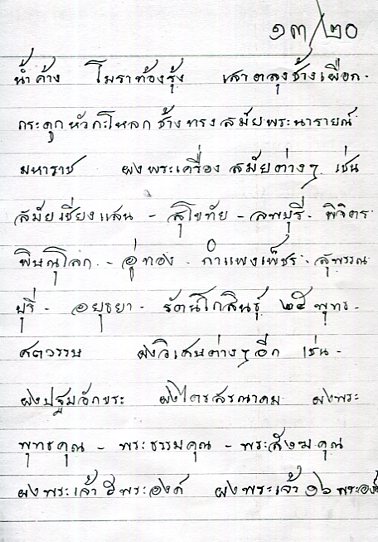 ๑๓/๒๐
น้ำค้าง โบราท้องรุ้ง เสาตลุงช้างเผือก.
กระดูกหัวกะโหลกช้างทรงสมัยพระนารายณ์
มหาราช ผงพระเครื่องสมัยต่างๆ เช่น
สมัยเชียงแสน - สุโขทัย - ลพบุรี - พิจิตร
พิษณุโลก - อู่ทอง - กำแพงเพ็ชร - สุพรรณ
บุรี - อยุธยา - รัตนโกสินธุ์ ๒๕ พุทธ-
ศตวรรษ ผงวิเศษต่างๆอีก เช่น-
ผงปฐมอักขระ ผงไตรสรณาคม ผงพระ
พุทธคุณ - พระธรรมคุณ - พระสังฆคุณ
ผงพระเจ้า ๕ พระองค์ ผงพระเจ้า ๑๖ พระองค์